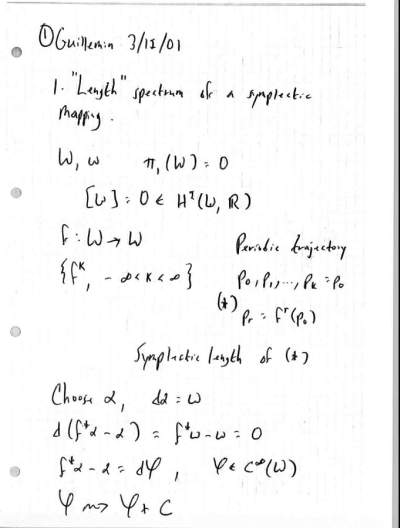 ① Guillemin 3/12/01
1. "Length" spectrum of a symplectic
mapping.
W, ω π₁(W) = 0
[ω] = 0 ∈ H²(W, ℝ)
f : W → W
Periodic trajectory
{fᴷ, -∞ < K < ∞}
p₀, p₁, ..., p_k = p₀
(*) p_r = fʳ(p₀)
Symplectic length of (*)
Choose α, dα = ω
d(f*α - α) = f*ω - ω = 0
f*α - α = dφ, φ ∈ C^∞(W)
φ ⇝ φ + C